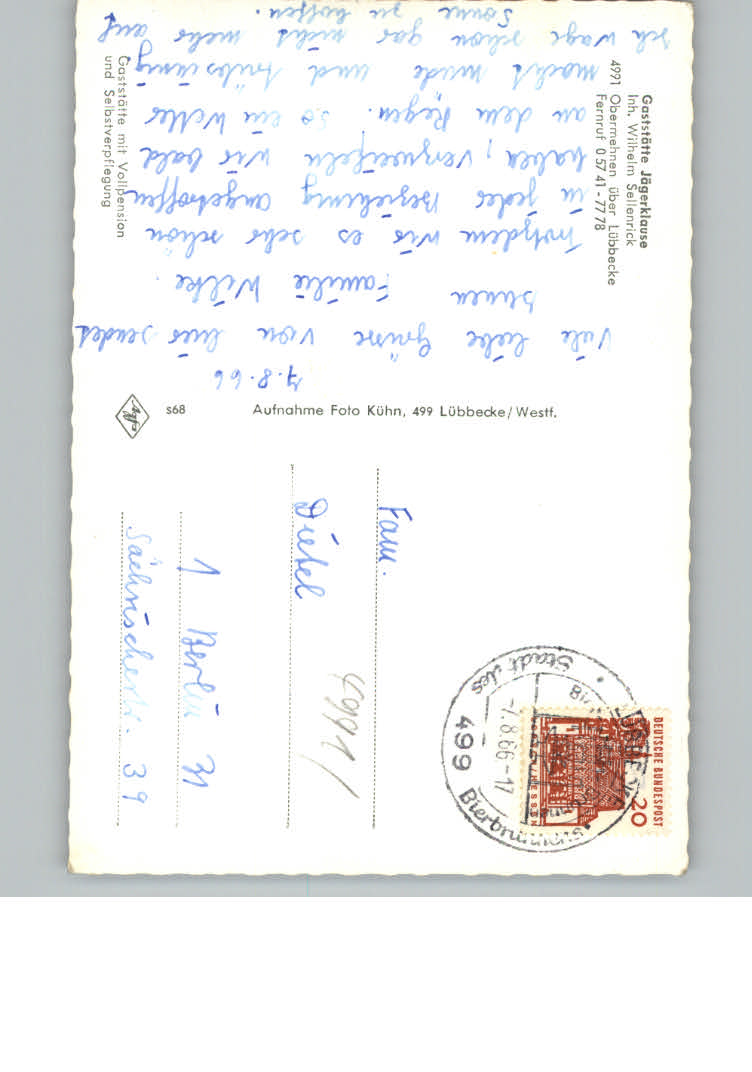 Gaststätte Jägerklause
Inh. Wilhelm Sellenrick
4991 Obermehnen über Lübbecke
Fernruf 0 57 41 - 77 78
Gaststätte mit Vollpension
und Selbstverpflegung
7.8.66
Viele liebe Grüsse von hier sendet
Ihnen Familie Wilke.
Trotzdem wir es sehr schön
in jeder Beziehung angetroffen
haben, verzweifeln wir bald
an dem Regen. So ein Wetter
macht müde und
Ich wage schon gar nicht mehr auf
Sonne zu hoffen.
Agfa
s68
Aufnahme Foto Kühn, 499 Lübbecke/Westf.
Fam.
Dietel
4991/
1 Berlin 31
Sächsischestr. 39
DEUTSCHE BUNDESPOST
20
499
-7.8.66-17
Stadt des Bierbrunnens